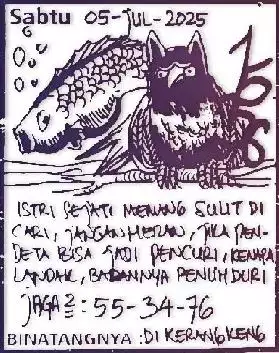 Sabtu 05-JUL-2025
ISTRI SEJATI MEMANG SULIT DI
CARI, JANGAN HERAN, JIKA PEN-
DETA BISA JADI PENCURI, KENAPA
LANDAK, BADANNYA PENUH DURI
JAGA²: 55-34-76
BINATANGNYA: DI KERANGKENG